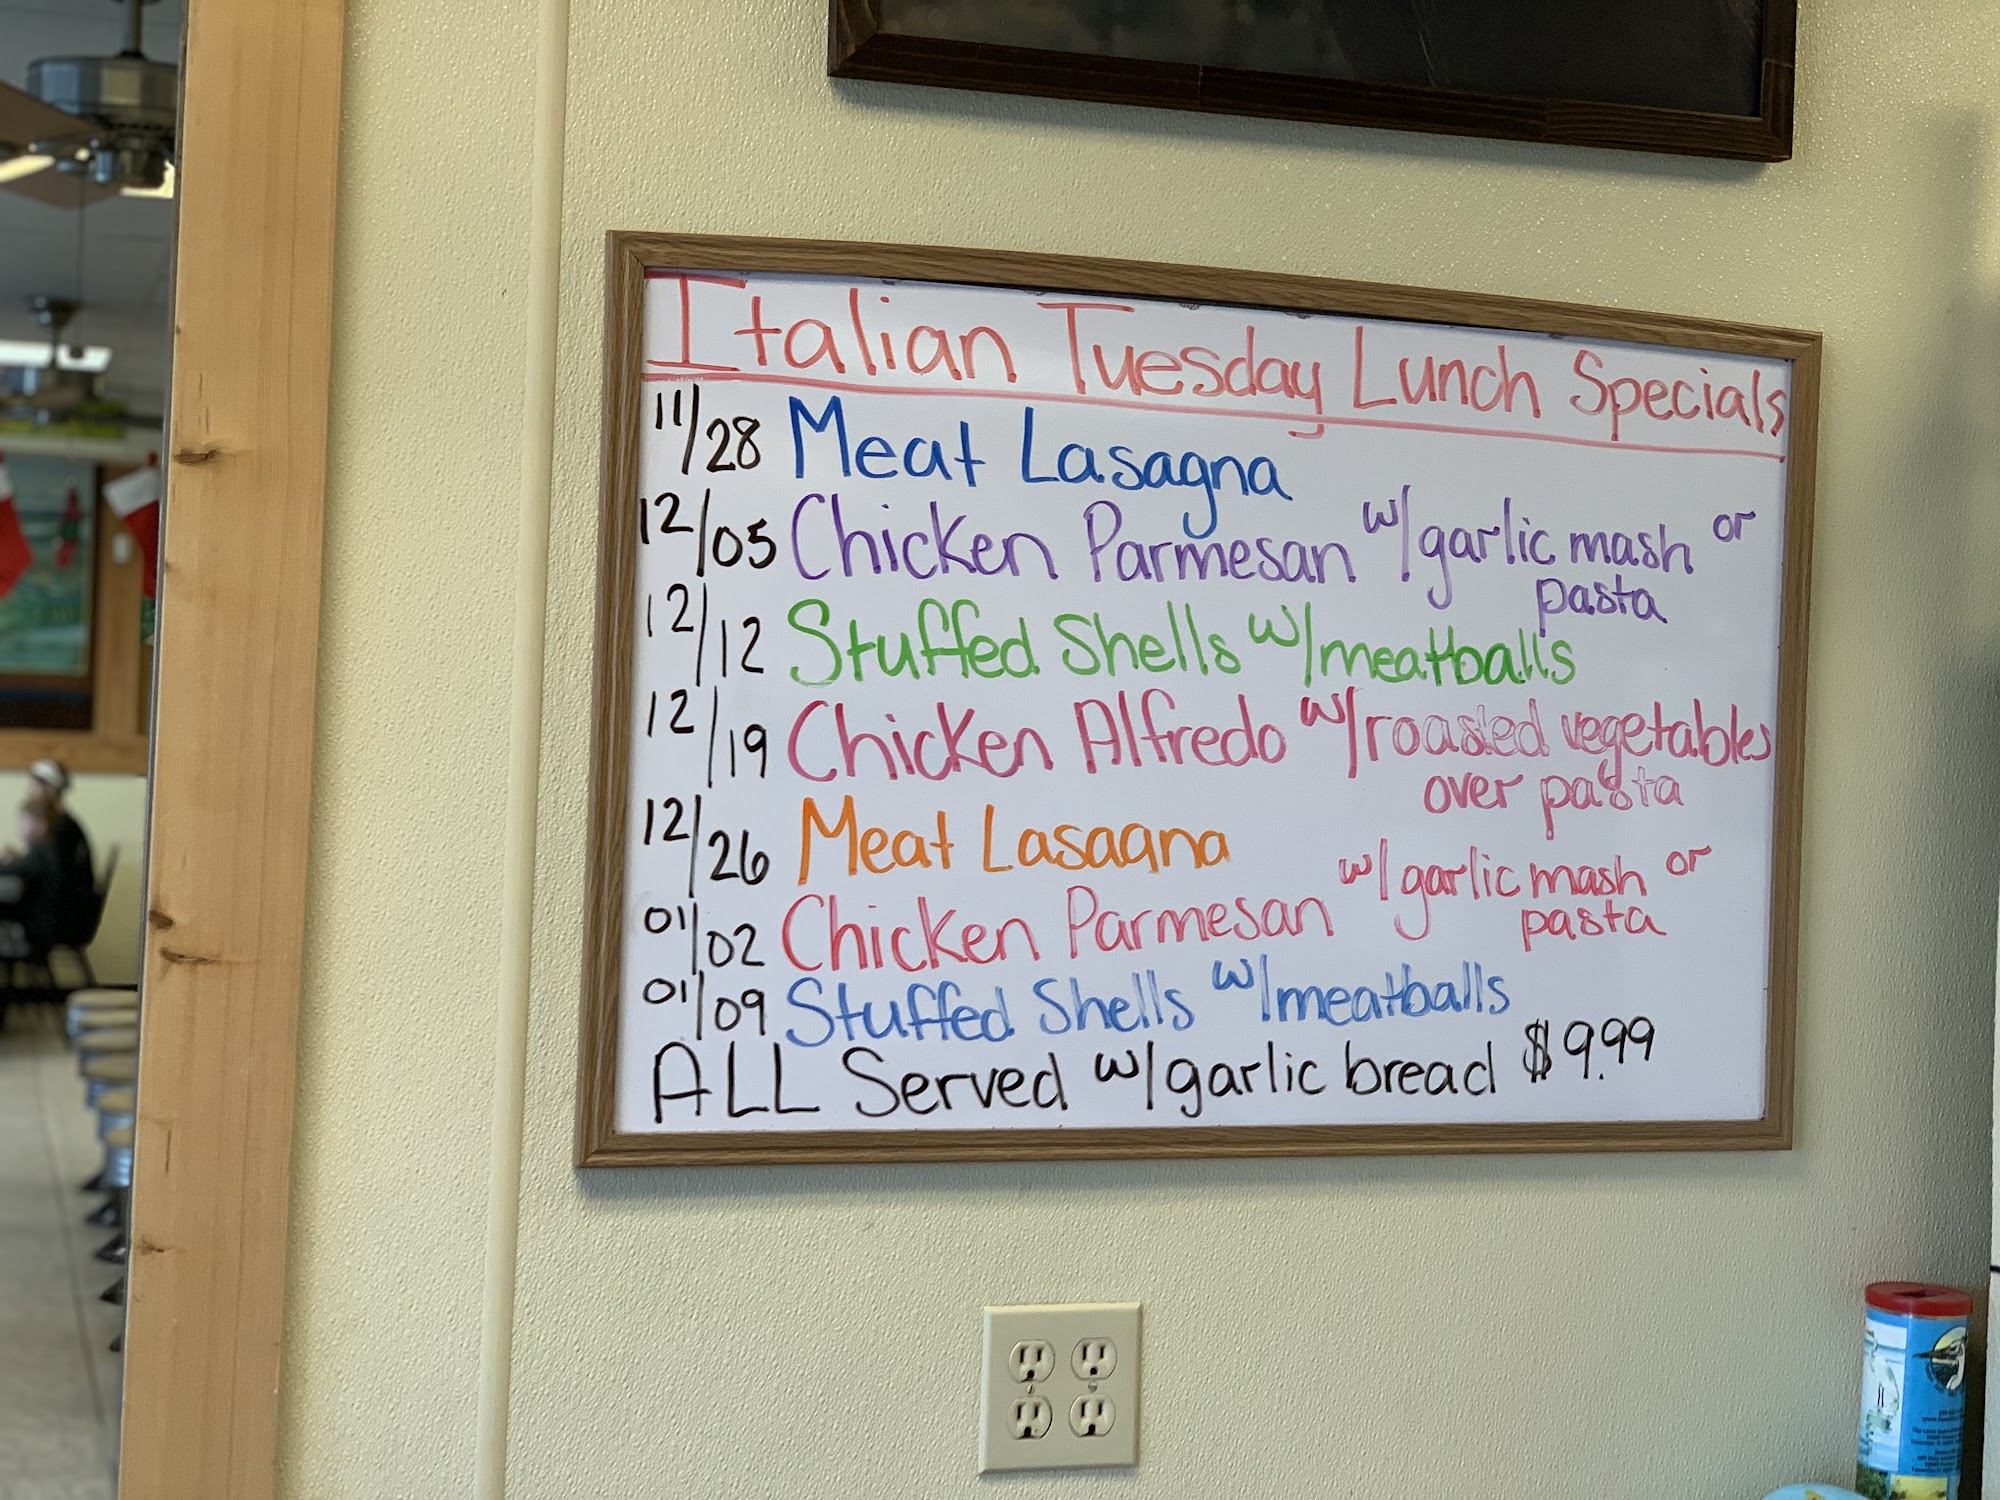 Italian Tuesday Lunch Specials
11/28 Meat Lasagna
12/05 Chicken Parmesan w/garlic mash or
pasta
12/12 Stuffed Shells w/meatballs
12/19 Chicken Alfredo w/roasted vegetables
over pasta
12/26 Meat Lasagna
01/02 Chicken Parmesan w/garlic mash or
pasta
01/09 Stuffed Shells w/meatballs
ALL Served w/garlic bread $9.99